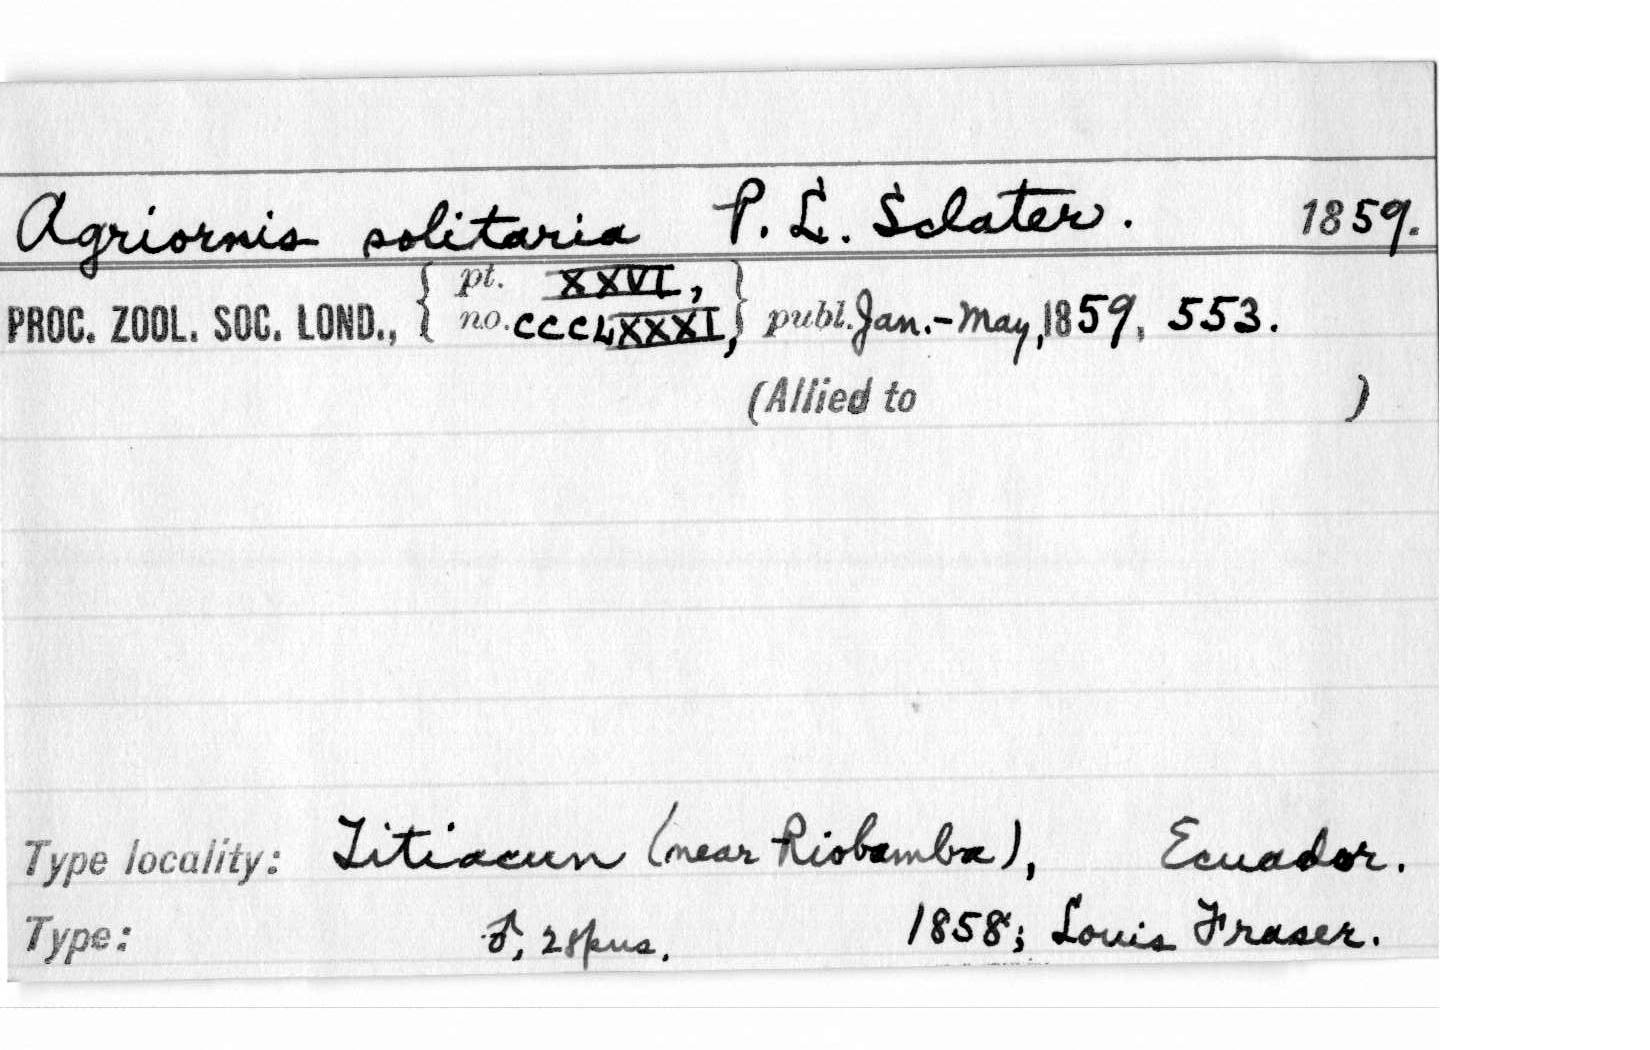 Agriornis solitaria P. L. Sclater. 1859.
pt. XXVI,
PROC. ZOOL. SOC. LOND., { no. CCCLXXXI, } publ. Jan.-May, 1859, 553.
(Allied to )
Type locality: Titiacun (near Riobamba), Ecuador.
Type: ♂, 2 spns. 1858; Louis Fraser.